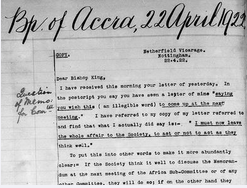 Bp. of Accra, 22 April 1922
Netherfield Vicarage,
Nottingham.
COPY. 22-4-22.
Dear Bishop King,
I have received this morning your letter of yesterday. In the
postscript you say you have seen a letter of mine "saying
you wish this ( an illegible word) to come up at the next
meeting." I have referred to my copy of my letter referred to
and find that what I actually did say is: " I must now leave
the whole affair to the Society, to act or not to act as they
think well."
To put this into other words to make it more abundantly
clear:- If the Society think it well to discuss the Memoran-
dum at the next meeting of the Africa Sub-Committee or of any
other Committee, they will do so; if on the other hand they
Question
of Memo.
for Com-